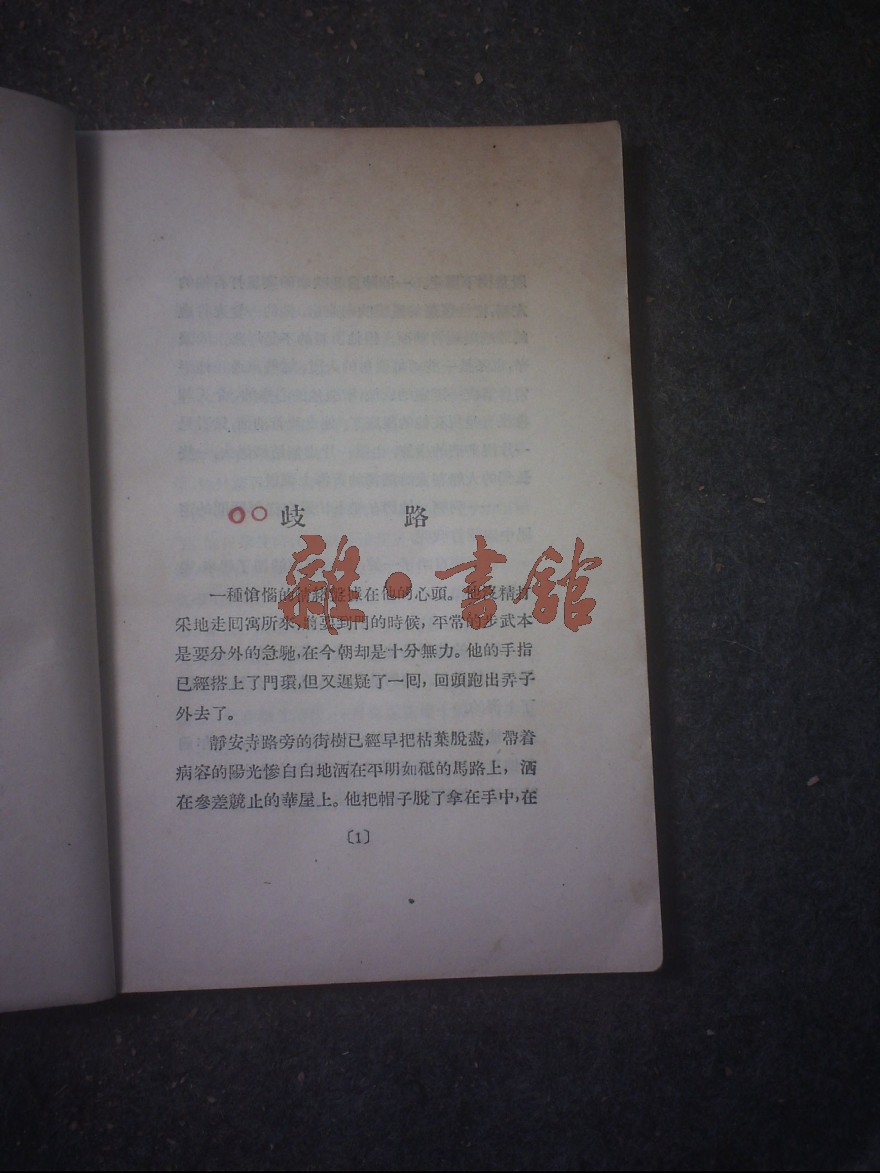 歧路
雜·書館
一種愴惱的情緒盤據在他的心頭。他沒精打
采地走回寓所來,將要到門的時候,平常的步武本
是要分外的急馳,在今朝却是十分無力。他的手指
已經搭上了門環,但又遲疑了一回,回頭跑出弄子
外去了。
靜安寺路旁的街樹已經早把枯葉脫盡,帶着
病容的陽光慘白白地洒在平明如砥的馬路上,洒
在參差競止的華屋上。他把帽子脫了拿在手中,在
〔1〕